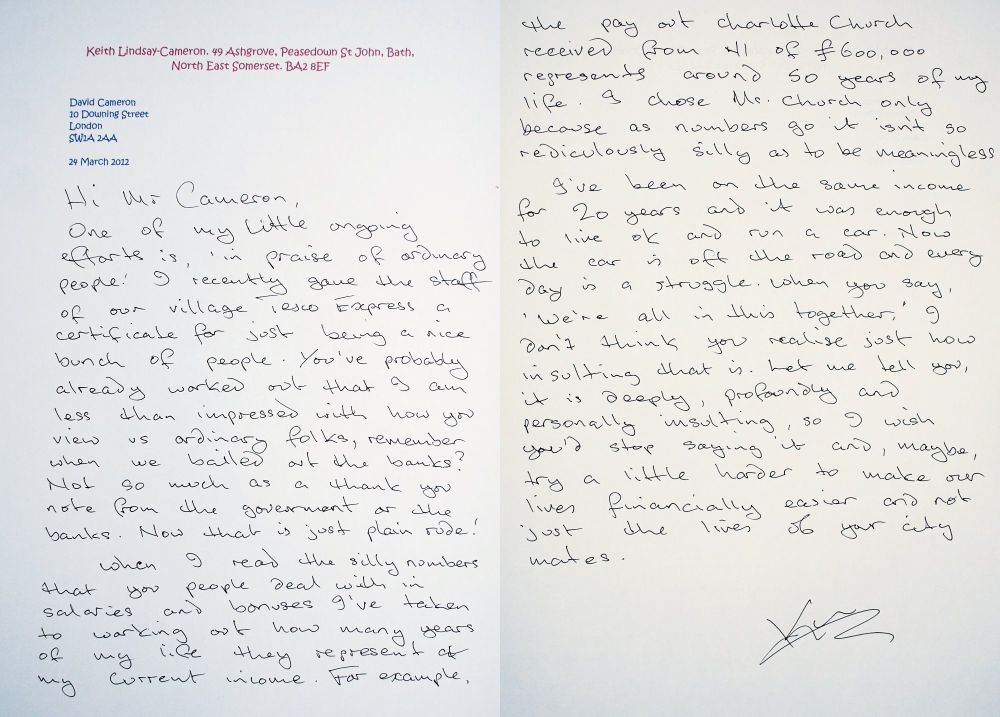 Keith Lindsay-Cameron. 49 Ashgrove, Peasedown St John, Bath,
North East Somerset. BA2 8EF
David Cameron
10 Downing Street
London
SW1A 2AA
24 March 2012
Hi Mr Cameron,
One of my little ongoing
efforts is, 'in praise of ordinary
people.' I recently gave the staff
of our village Tesco Express a
certificate for just being a nice
bunch of people. You've probably
already worked out that I am
less than impressed with how you
view us ordinary folks, remember
when we bailed out the banks?
Not so much as a thank you
note from the goverment or the
banks. Now that is just plain rude!
When I read the silly numbers
that you people deal with in
salaries and bonuses I've taken
to working out how many years
of my life they represent at
my current income. For example,
the pay out Charlotte Church
received from NI of £600,000
represents around 50 years of my
life. I chose Ms. Church only
because as numbers go it isn't so
rediculously silly as to be meaningless
I've been on the same income
for 20 years and it was enough
to live ok and run a car. Now
the car is off the road and every
day is a struggle. When you say,
'We're all in this together,' I
don't think you realise just how
insulting that is. Let me tell you,
it is deeply, profoundly and
personally insulting, so I wish
you'd stop saying it and, maybe,
try a little harder to make our
lives financially easier and not
just the lives of your city
mates.